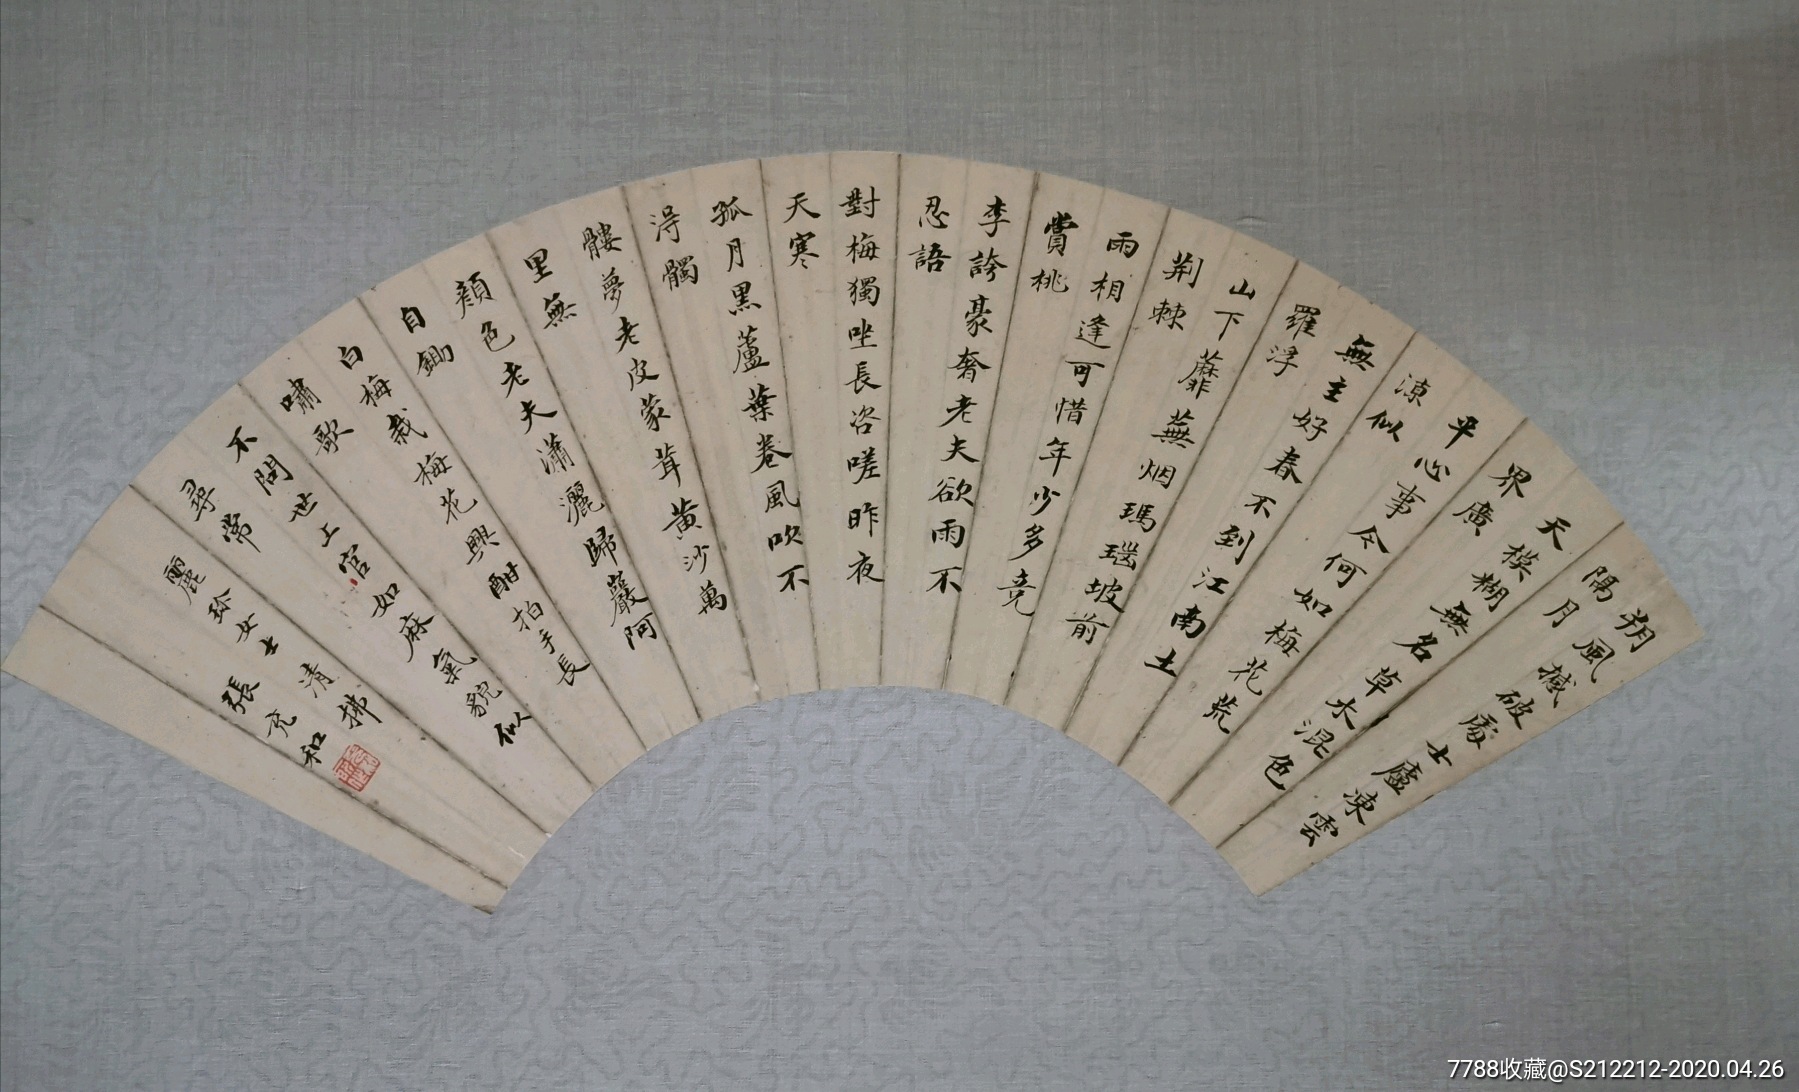 朔風撼破處士廬凍雲
隔月
天模糊無名草木混色
界廣
平心事今何如梅花荒
涼似
無主好春不到江南土
羅浮
山下蘼蕪烟瑪瑙坡前
荆棘
雨相逢可惜年少多竞
賞桃
李誇豪奢老夫欲雨不
忍語
對梅獨坐長咨嗟昨夜
天寒
孤月黑蘆葉卷風吹不
得髑
髏夢老皮蒙茸黄沙萬
里無
顏色老夫瀟灑歸巖阿
自鋤
白梅栽梅花興酣拍手長
嘯歌
不問世上官如麻氣貌似
尋常
麗珍女士清拂
張充和
7788收藏@S212212-2020.04.26